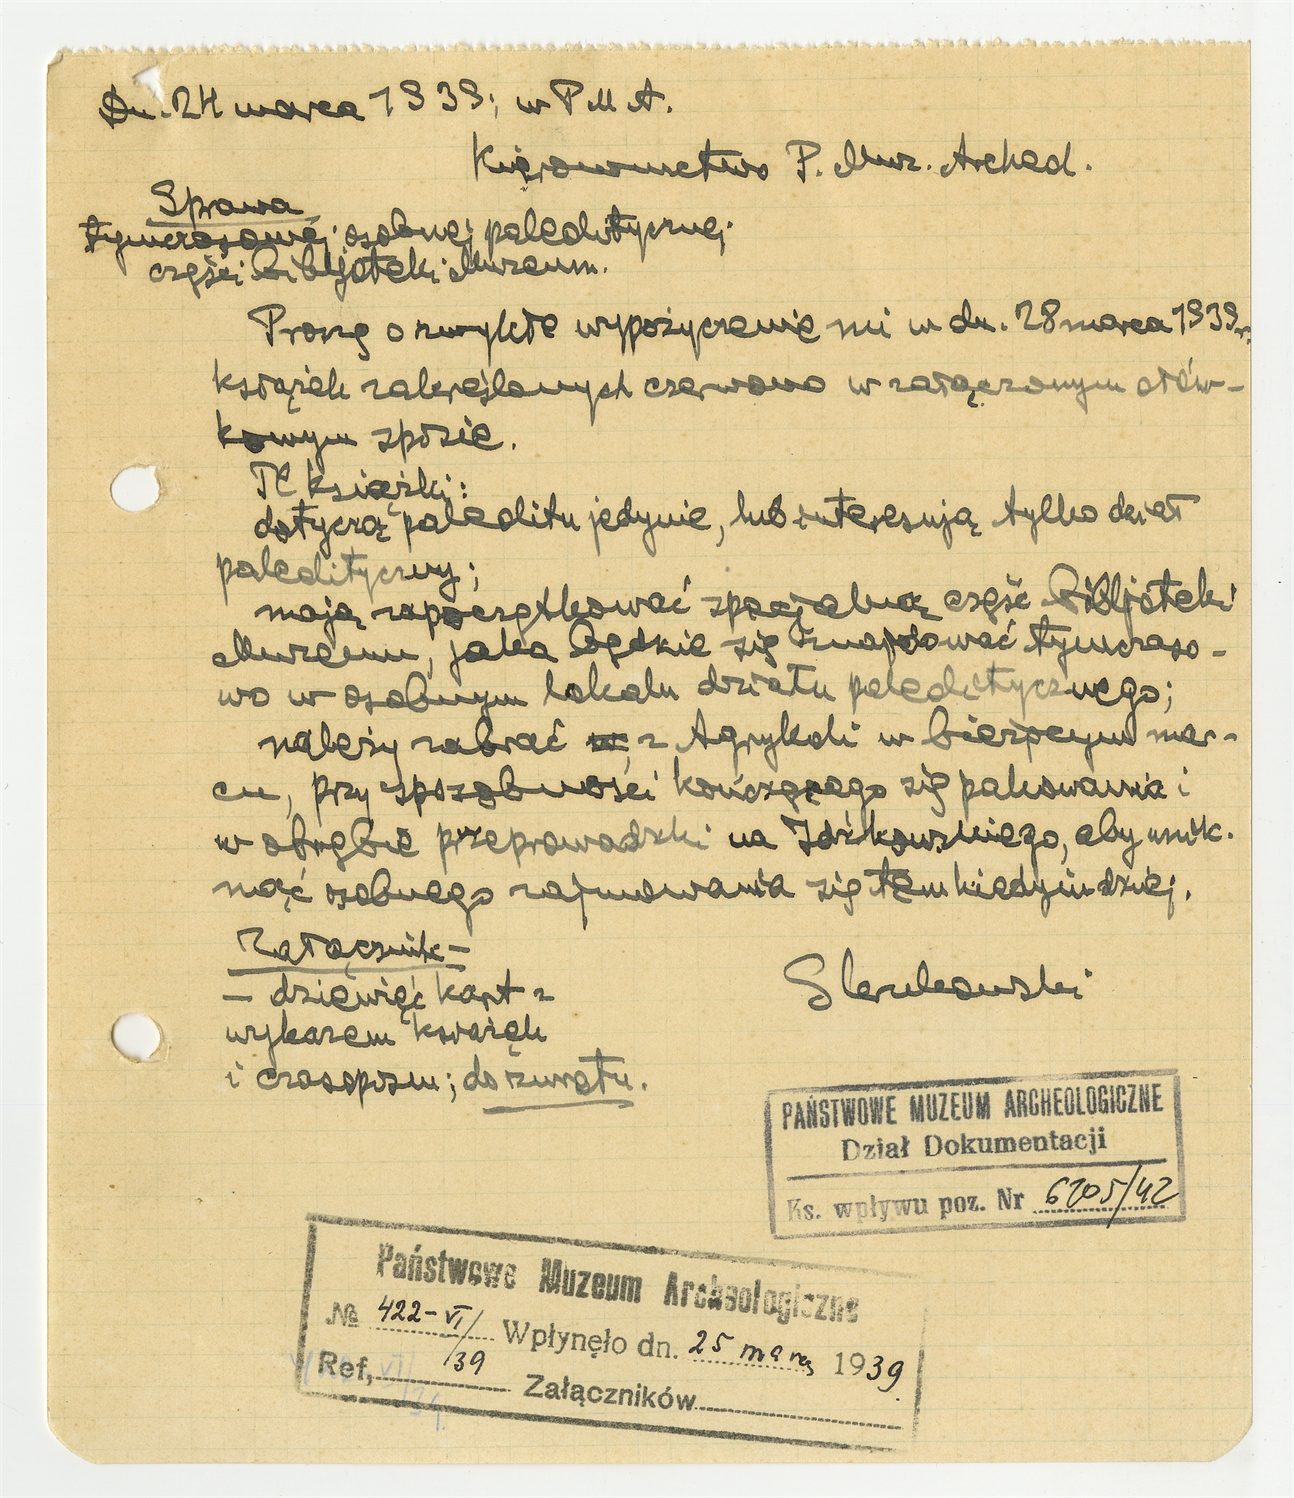 Dn. 24 marca 1939; w P M A.
Kierownictwo P. Muz. Archeol.
Sprawa
tymczasowej osobnej paleolitycznej
części Bibljoteki Muzeum.
Proszę o zwykłe wypożyczenie mi w dn. 28 marca 1939 r.
książek zakreślonych czerwono w załączonym ołów-
kowym spisie.
Te książki:
dotyczą paleolitu jedynie, lub interesują tylko dział
paleolityczny;
mają zapoczątkować specjalną część Bibljoteki
Muzeum, jaka będzie się znajdować tymczaso-
wo w osobnym lokalu działu paleolitycznego;
należy zabrać z Agrykoli w bieżącym mar-
cu, przy sposobności kończącego się pakowania i
w obrębie przeprowadzki na Idzikowskiego, aby unik-
nąć osobnego zajmowania się tem kiedyindziej.
Załącznik -
- dziewięć kart z
wykazem książek
i czasopism; do zwrotu.
S Krukowski
PAŃSTWOWE MUZEUM ARCHEOLOGICZNE
Dział Dokumentacji
Ks. wpływu poz. Nr 6205/42
Państwowe Muzeum Archeologiczne
№ 422-VI/39 Wpłynęło dn. 25 marca 1939
Ref, Załączników